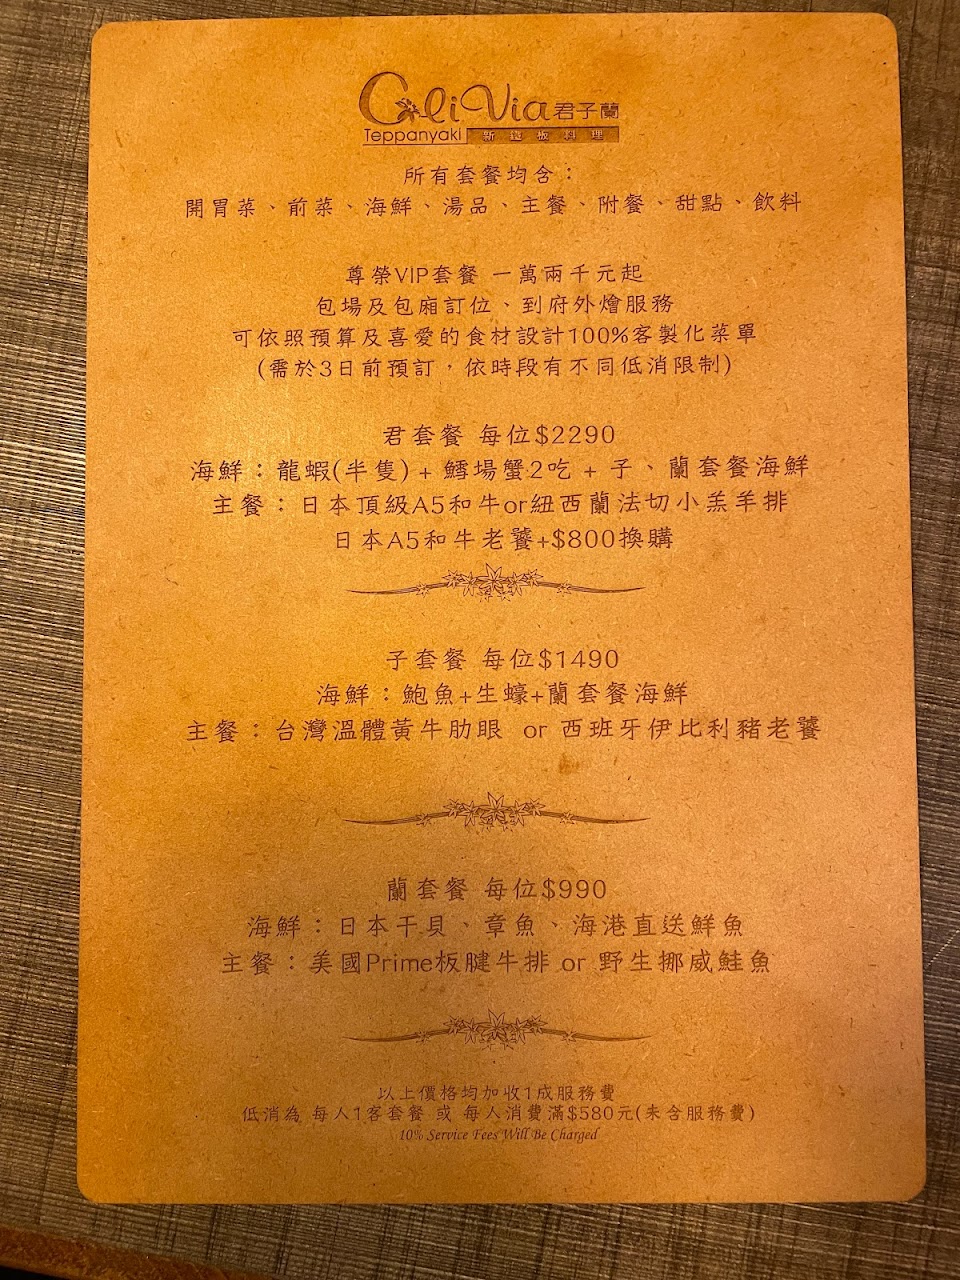 CliVia 君子蘭
Teppanyaki 新鐵板料理
所有套餐均含：
開胃菜、前菜、海鮮、湯品、主餐、附餐、甜點、飲料
尊榮VIP套餐 一萬兩千元起
包場及包廂訂位、到府外燴服務
可依照預算及喜愛的食材設計100%客製化菜單
(需於3日前預訂，依時段有不同低消限制)
君套餐 每位$2290
海鮮：龍蝦(半隻) + 鱈場蟹2吃 + 子、蘭套餐海鮮
主餐：日本頂級A5和牛or紐西蘭法切小羔羊排
日本A5和牛老饕+$800換購
子套餐 每位$1490
海鮮：鮑魚+生蠔+蘭套餐海鮮
主餐：台灣溫體黃牛肋眼 or 西班牙伊比利豬老饕
蘭套餐 每位$990
海鮮：日本干貝、章魚、海港直送鮮魚
主餐：美國Prime板腱牛排 or 野生挪威鮭魚
以上價格均加收1成服務費
低消為 每人1客套餐 或 每人消費滿$580元(未含服務費)
10% Service Fees Will Be Charged